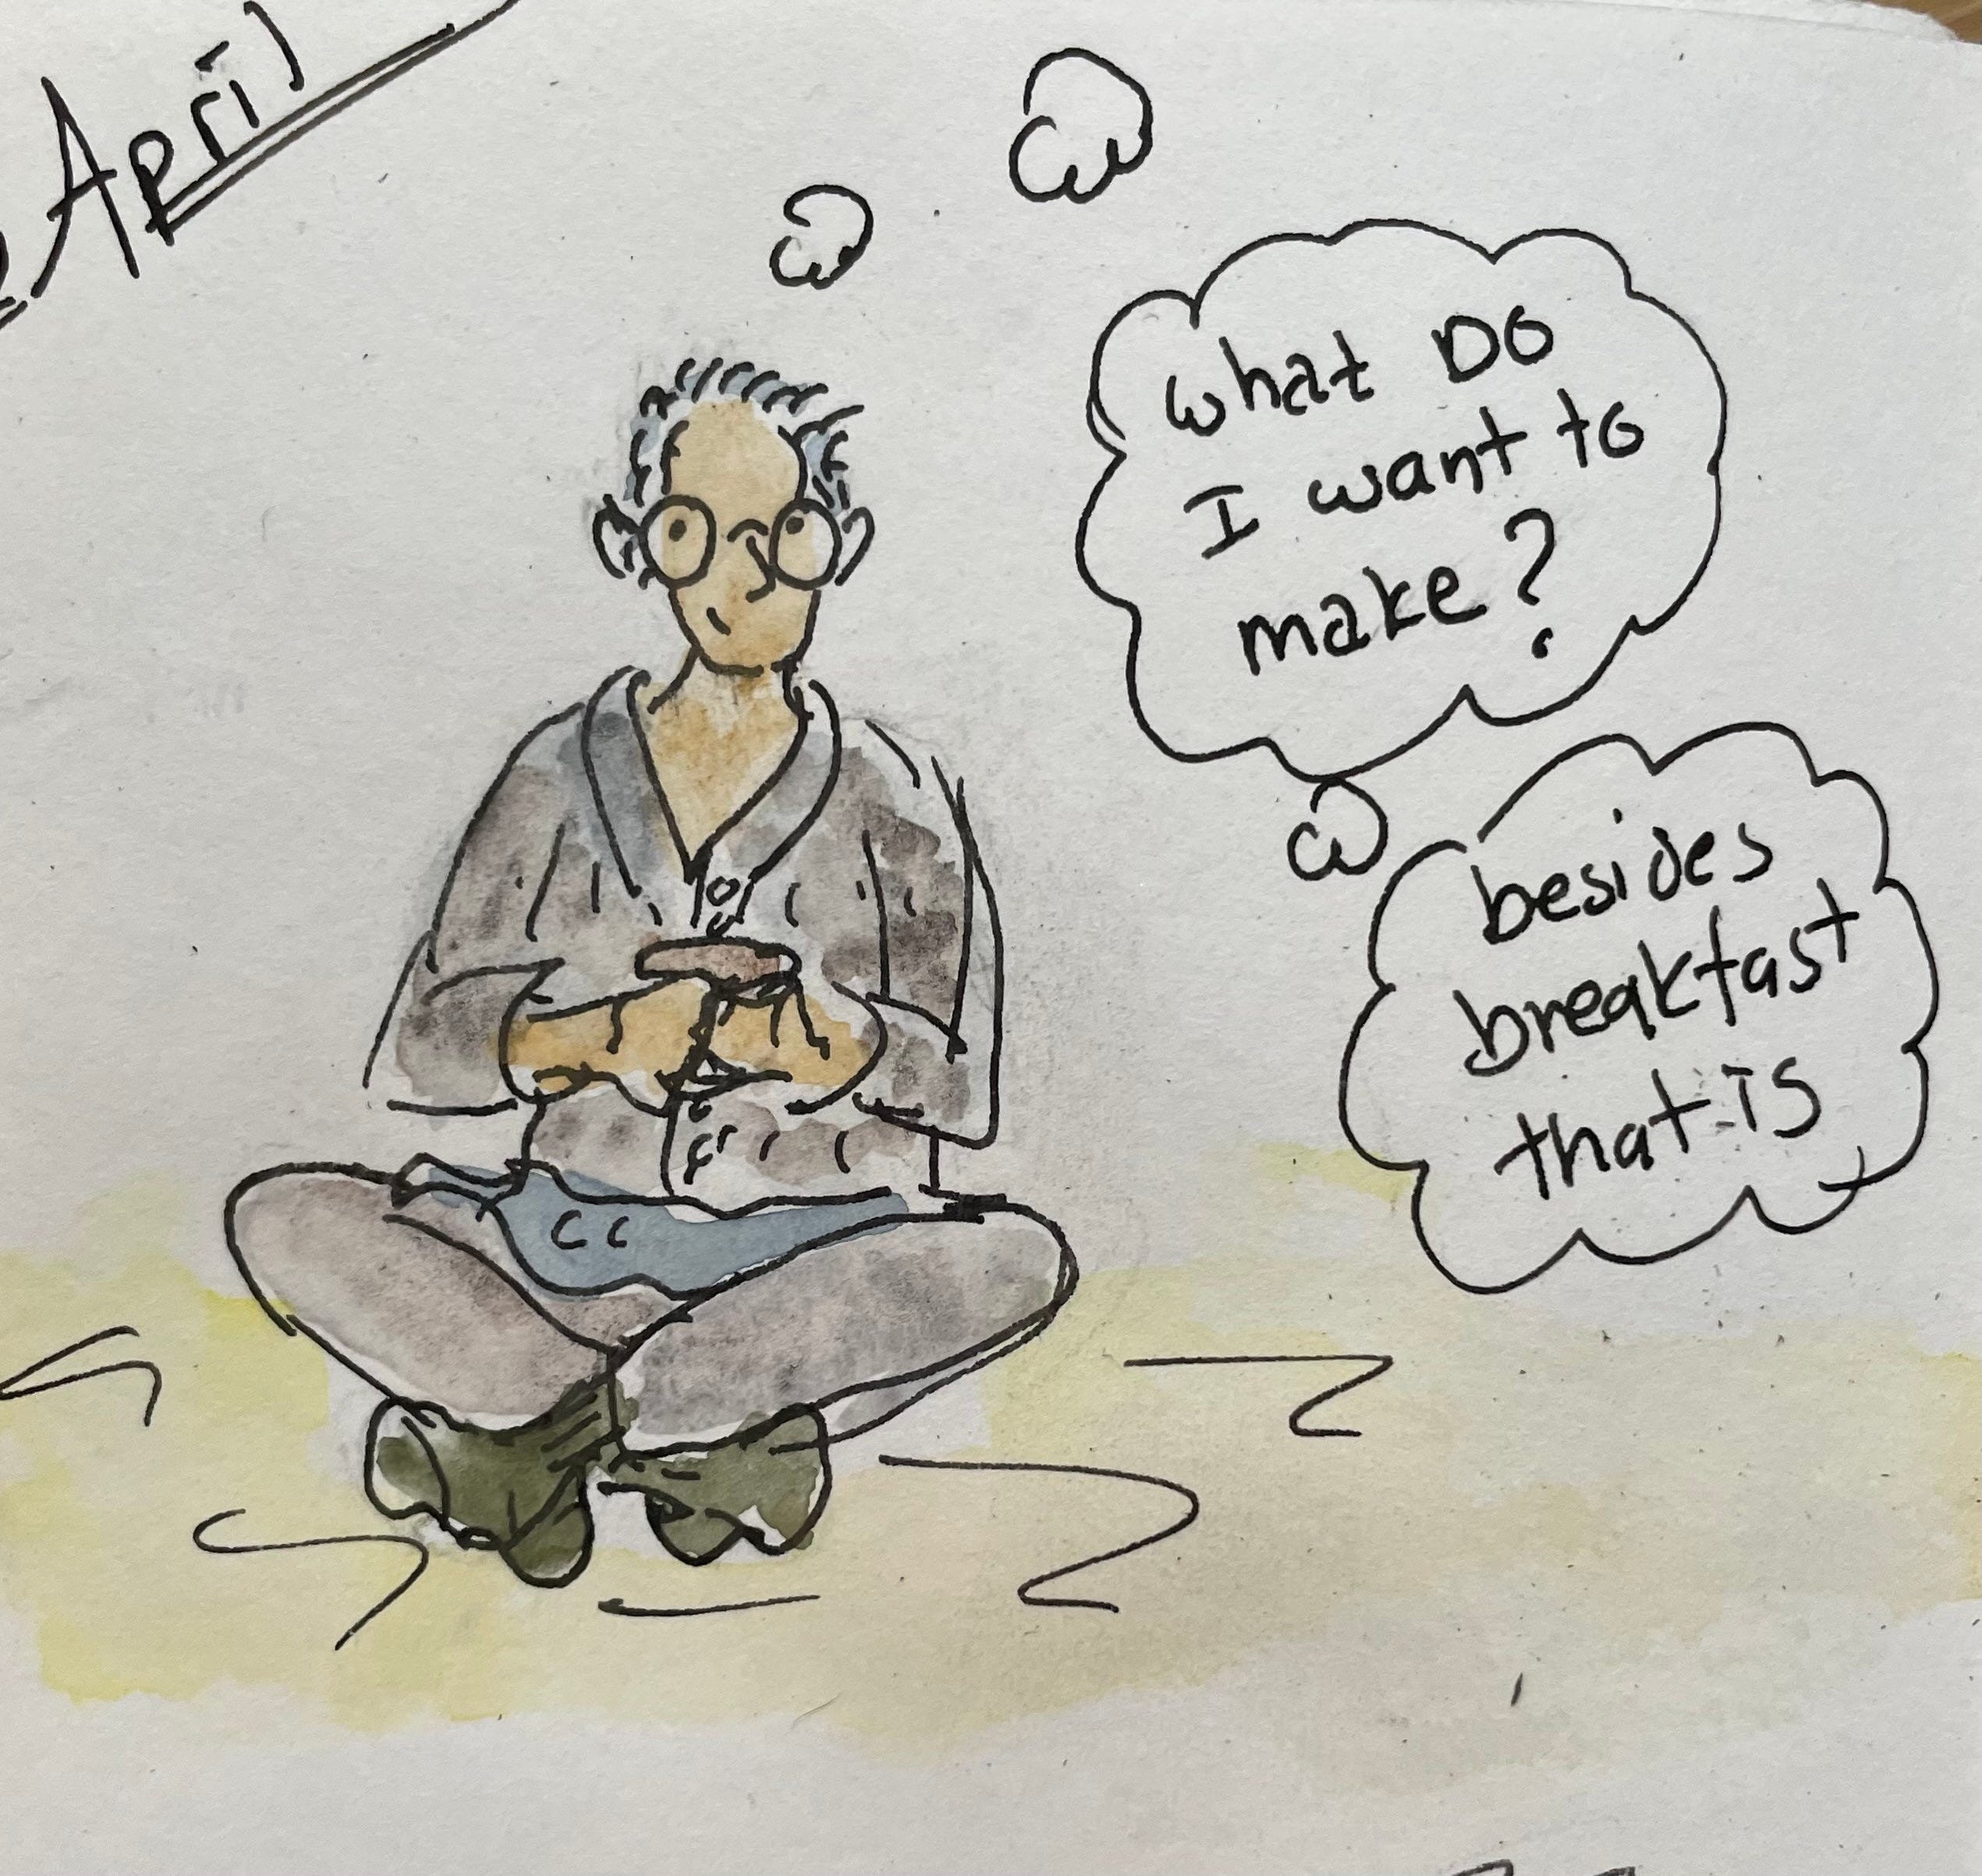 April
what DO
I want to
make?
besides
breakfast
that is